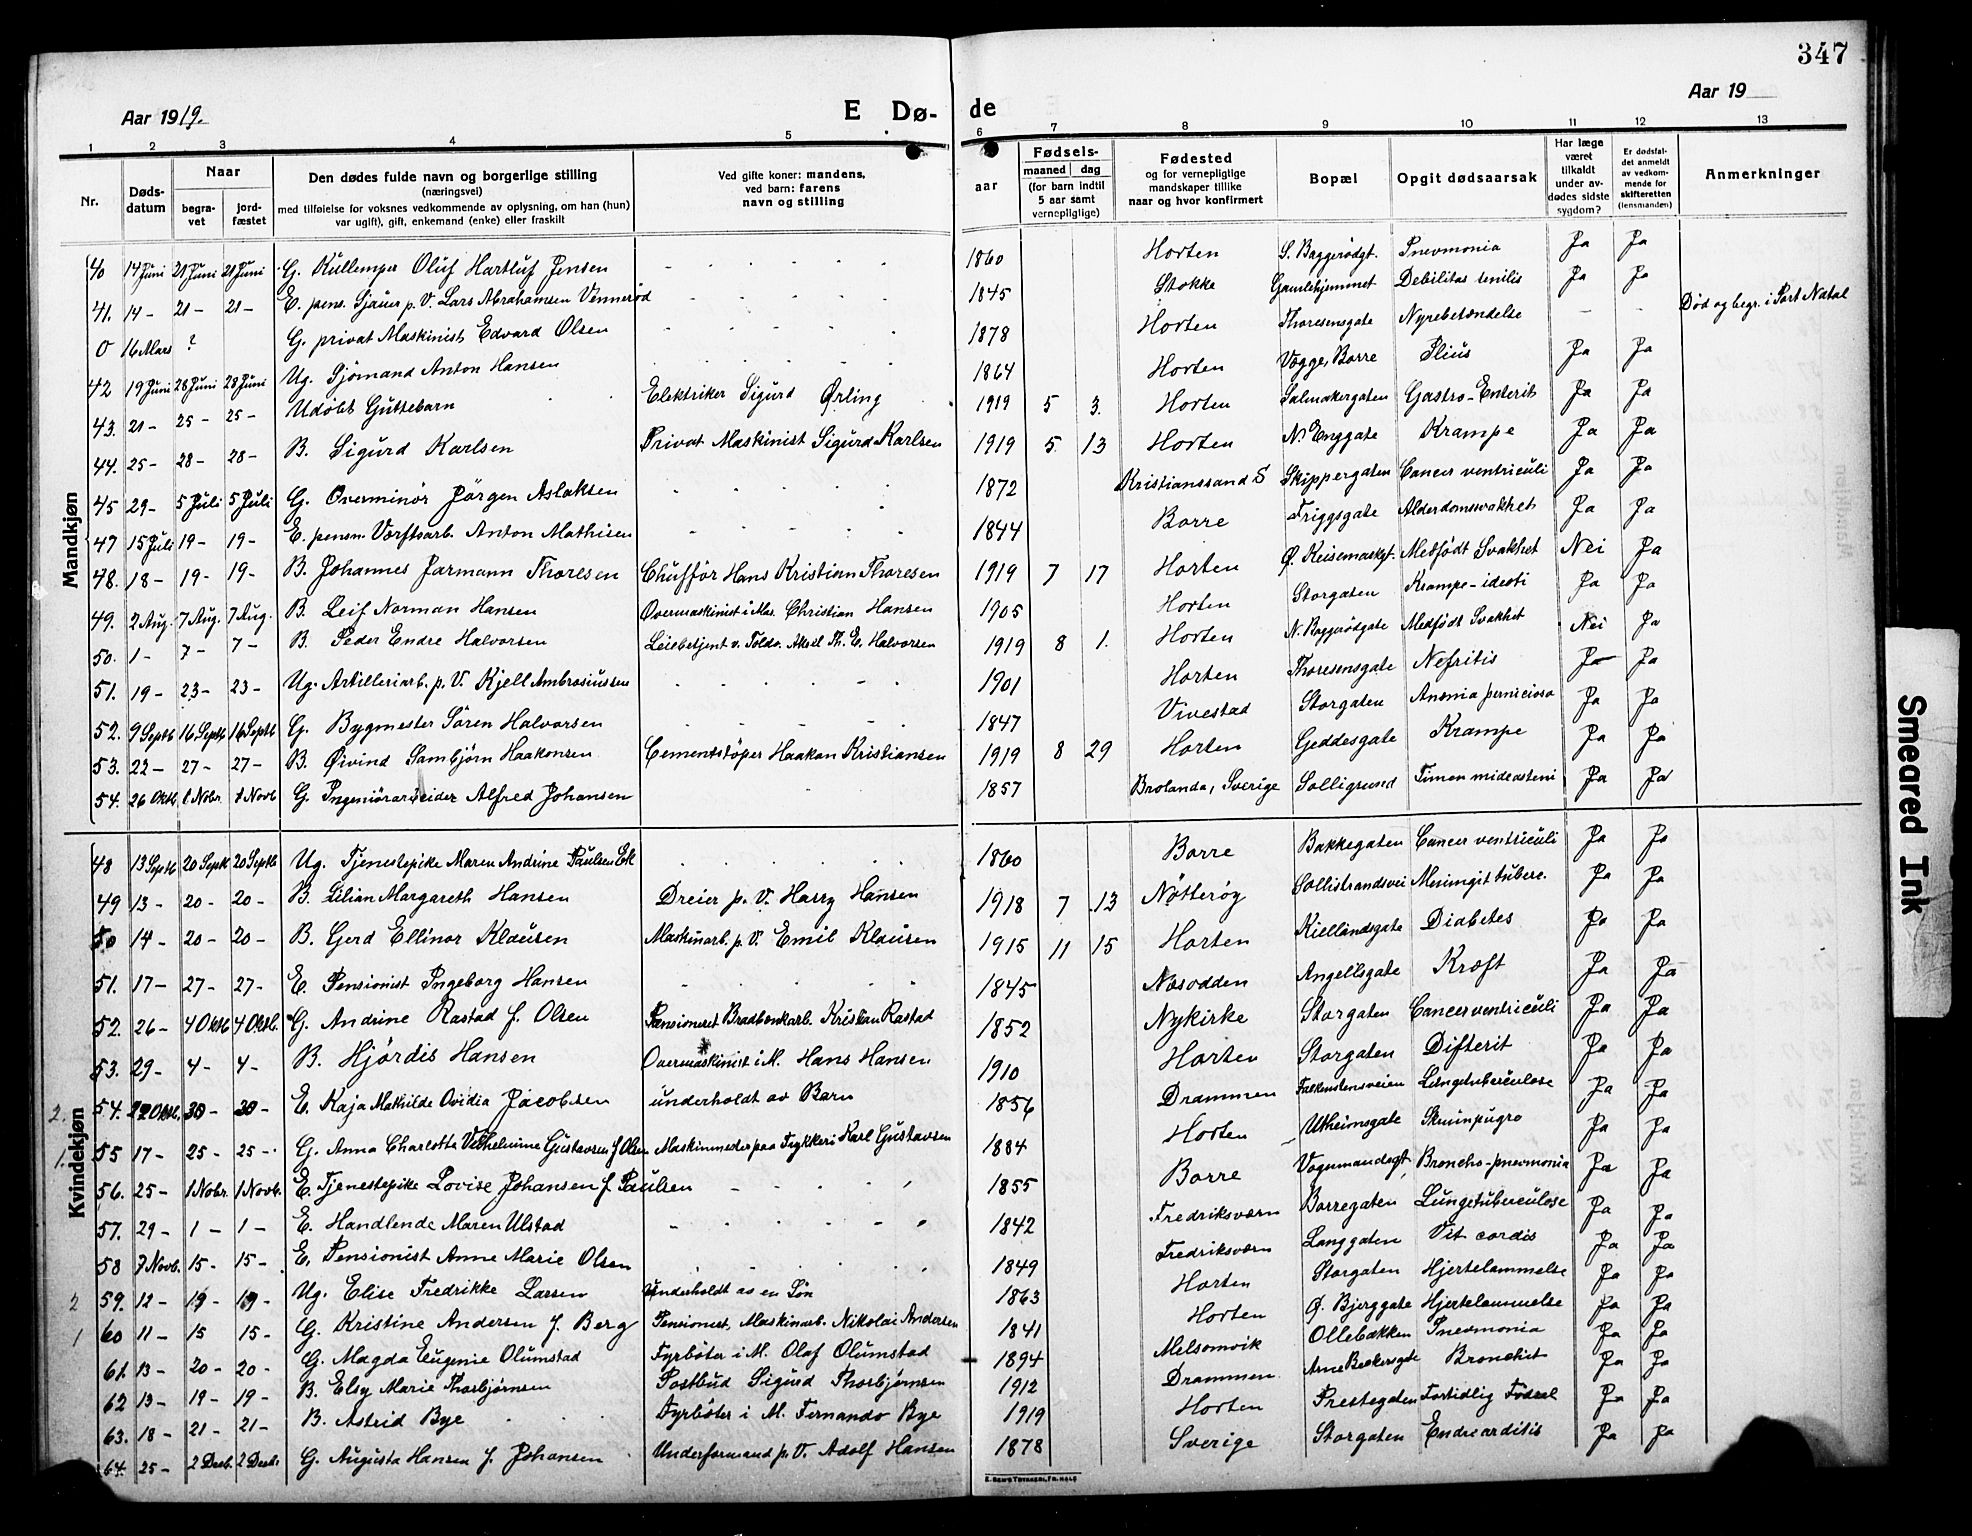 347
Aar 1919.
E Dø- de
Aar 19
1 2 3 4 5 6 7 8 9 10 11 12 13
Nr.
Døds-datum
Naar
begra-vet
jord-fæstet
Den dødes fulde navn og borgerlige stilling
(næringsvei)
med tilføielse for voksnes vedkommende av oplysning, om han (hun)
var ugift), gift, enkemand (enke) eller fraskilt
Ved gifte koner: mandens,
ved barn: farens
navn og stilling
Fødsels-
aar
maaned dag
(for barn indtil
5 aar samt
vernepligtige)
Fødested
og for vernepligtige
mandskaper tillike
naar og hvor konfirmert
Bopæl
Opgit dødsaarsak
Har læge
været
tilkaldt
under av-
dødes sidste
sygdom?
Er dødsfal-
det anmeldt
av vedkom-
mende for
skifteretten
(lensmanden)
Anmerkninger
Mandkjøn
40 14 Juni 21 Juni 21 Juni G. Oluf Hartluf Jensen 1860 Horten S. Baggerødgt. Pnevmonia Ja Ja
41. 14 - 21 - 21 - E. pens. Sjauer p. V. Lars Abrahamsen Vennerød 1845 Stokke Gamlehjemmet Debilitas senilis Ja Ja
0 16 Mars ? G. privat Maskinist Edvard Olsen 1878 Horten Thoresensgate Nyrebetændelse - - Død og begr. i Port Natal
42 19 Juni 28 Juni 28 Juni Ug. Sjømand Anton Hansen 1864 Horten Vøgge, Borre Ja Ja
43. 21 - 25 - 25 - Udøbt Guttebarn Elektriker Sigurd Ørling 1919 5 3. Horten Salmakergaten Gastro-Enterit Ja Ja
44. 25 - 28 - 28 - B. Sigurd Karlsen Privat Maskinist Sigurd Karlsen 1919 5 13 Horten N. Enggate Krampe Ja Ja
45 29 - 5 Juli 5 Juli G. Overminør Jørgen Aslaksen 1872 Kristianssand S Skippergaten Cancer ventriculi Ja Ja
47 15 Juli 19 - 19 - E. pensn. Værftsarb. Anton Mathisen 1844 Borre Friggsgate Alderdomssvakhet Ja Ja
48. 18 - 19 - 19 - B. Johannes Jarmann Thoresen Chufför Hans Kristian Thoresen 1919 7 17 Horten Ø. Keisemarkgt. Medfödt Svakhet Nei Ja
49. 2 Aug. 7 Aug. 7 Aug. B. Leif Norman Hansen Overmaskinist i Mar. Christian Hansen 1905 Horten Storgaten Krampe-idioti Ja Ja
50. 1 - 7 - 7 - B. Peder Endre Halvorsen Leiebetjent v. Toldv. Aksel Th. E. Halvorsen 1919 8 1. Horten N. Baggerödgate Medfödt Svakhet Nei Ja
51. 19 - 23 - 23 - Ug. Artilleriarb. p. V. Kjell Ambrosiussen 1901 Horten Thoresensgate Nefritis Ja Ja
52. 9 Septb 16 Septb 16 Septb G. Bygmester Sören Halvorsen 1847 Vivestad Storgaten Anæmia perniciosa Ja Ja
53. 22 - 27 - 27 - B. Øivind Sambjörn Haakonsen Cementstöper Haakon Kristiansen 1919 8 29 Horten Geddesgate Krampe Ja Ja
54. 26 Oktb. 1 Nobr. 1 Novb G. Ingeniörarbeider Alfred Johansen 1857 Brolanda, Sverige Solligrund Ja Ja
Kvindekjøn
48 13 Septb 20 Septb 20 Septb Ug. Tjenestepike Maren Andrine Paulsen Ek 1860 Borre Bakkegaten Cancer ventriculi Ja Ja
49 13 - 20 - 20 - B. Lilian Margareth Hansen Dreier p. V. Harry Hansen 1918 7 13 Nøtterøy Sollistrandsvei Meningit tuberc. Ja Ja
50 14 - 20 - 20 - B. Gerd Ellinor Klausen Maskinarb. p. V. Emil Klausen 1915 11 15 Horten Kiellandsgate Diabetes Ja Ja
51. 17 - 27 - 27 - E. Pensionist Ingeborg Hansen 1845 Næsodden Angellsgate Kræft Ja Ja
52. 26 - 4 Oktb 4 Oktb. G. Andrine Rastad f. Olsen Pensioneret Bradbænkarb. Kristian Rastad 1852 Nykirke Storgaten Cancer ventriculi Ja Ja
53. 29 - 4 - 4 - B. Hjördis Hansen Overmaskinist i M. Hans Hansen 1910 Horten Storgaten Difterit Ja Ja
2. 54. 22 Oktb. 30 - 30 - E. Kaja Mathilde Ovidia Jacobsen underholdt av Barn 1856 Drammen Falkenstensveien Lungetuberculose Ja Ja
1. 55 17 - 25 - 25 - G. Anna Charlotte Vilhelmine Gustavsen f. Olsen Maskinmeder paa Trykkeri Karl Gustavsen 1884 Horten Utheimsgate Ja Ja
56. 25 - 1 Nobr. 1 Novb. E. Tjenestepike Lovise Johansen f. Paulsen 1855 Borre Vognmandsgt. Broncho-pnevmonia Ja Ja
57. 29 - 1 - 1 - E. Handlende Maren Ulstad 1842 Fredriksværn Borregaten Lungetuberculose Ja Ja
58 7 Novb. 15 - 15 - E. Pensionist Anne Marie Olsen 1849 Fredriksværn Langgaten Vit. cordis Ja Ja
2 59. 12 - 19 - 19 - Ug. Elise Fredrikke Larsen Underholdt av en Søn 1863 Horten Storgaten Hjertelammelse Ja Ja
1 60 11 - 15 15 - G. Kristine Andersen f. Berg Pensionist, Maskinarb. Nikolai Andersen 1841 Horten Ø. Bjerggate Hjertelammelse Ja Ja
61. 13 - 20 - 20 - G. Magda Eugenie Olumstad Fyrböter i M. Olaf Olumstad 1894 Melsomvik Ollebakken Pnevmonia Ja Ja
62 13 - 19 - 19 - B. Elsy Marie Thorbjørnsen Postbud Sigurd Thorbjørnsen 1912 Drammen Arne Beckersgate Bronchit Ja Ja
63. 18 - 21 - 21 - B. Astrid Bye Fyrböter i M. Fernando Bye 1919 Horten Prestegaten Fortidlig Fødsel Ja Ja
64. 25 - 2 Decb. 2 Decb. G. Augusta Hansen f. Johansen Underformand p. V. Adolf Hansen 1878 Sverige Storgaten Endocarditis Ja Ja
Smeared Ink